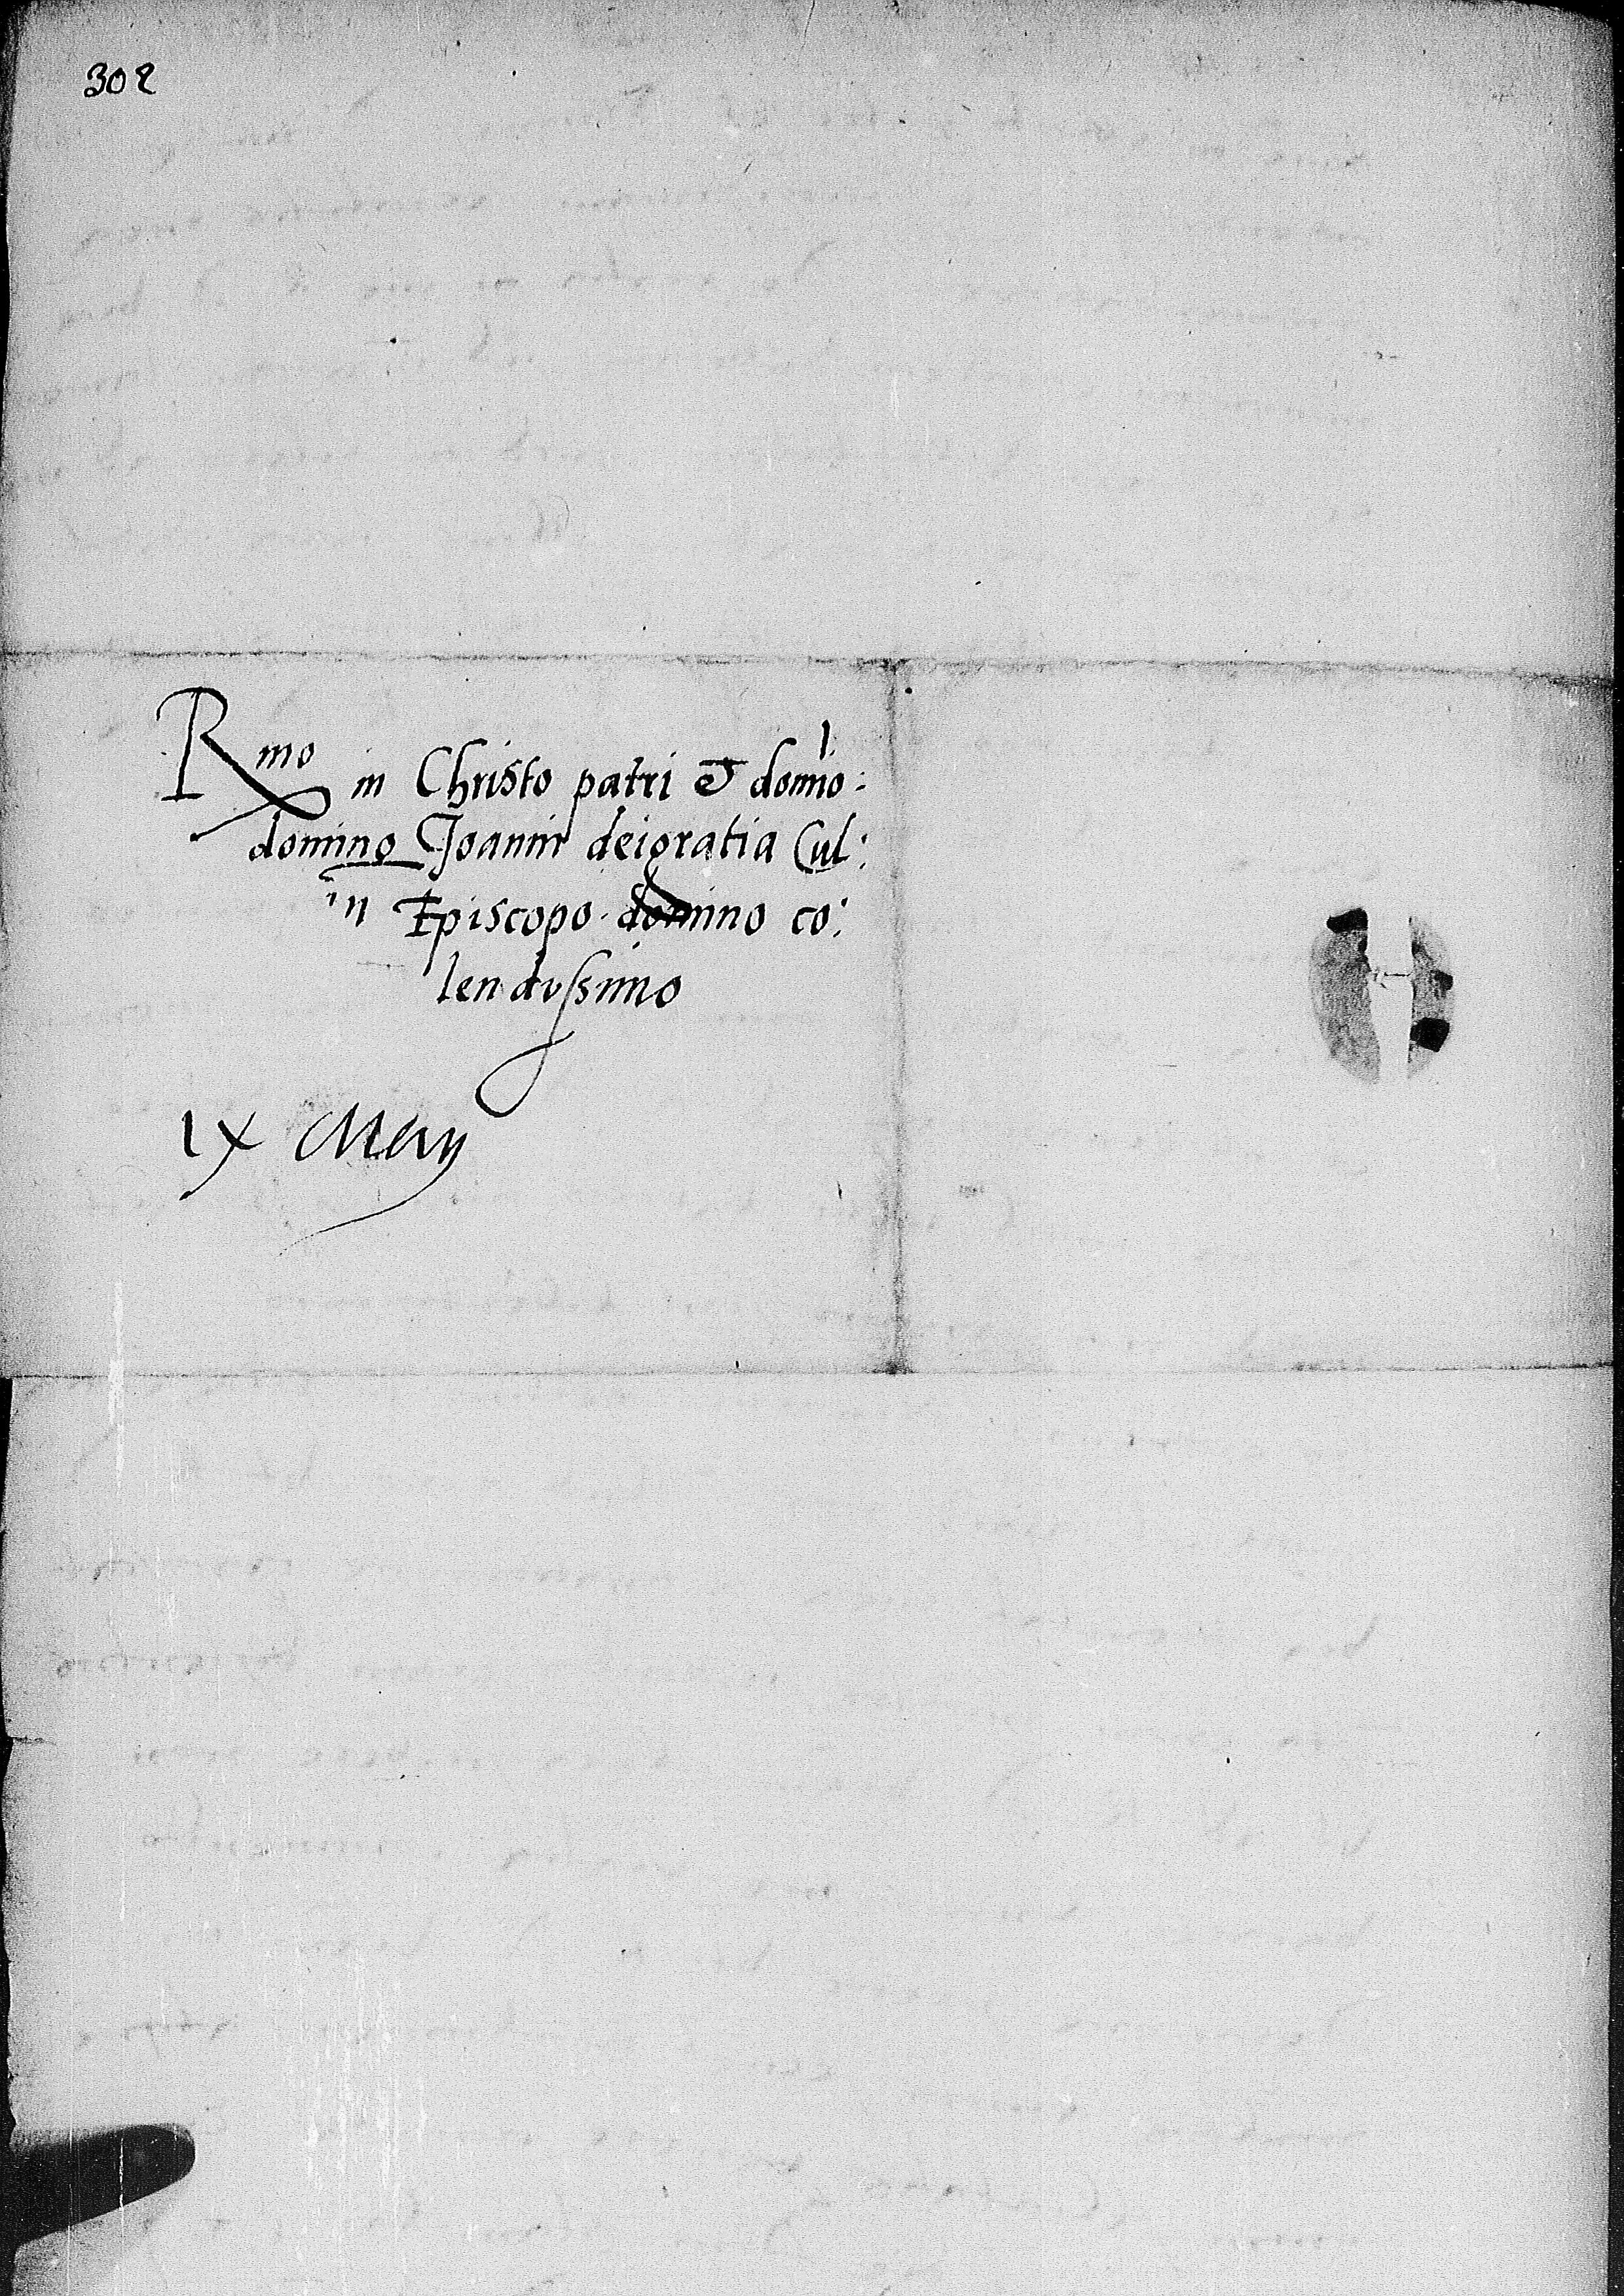 302
Rmo in Christo patri et domio:
domino Joanni dei gratia Cul:
in Episcopo domino co:
lendissimo
IX Maij